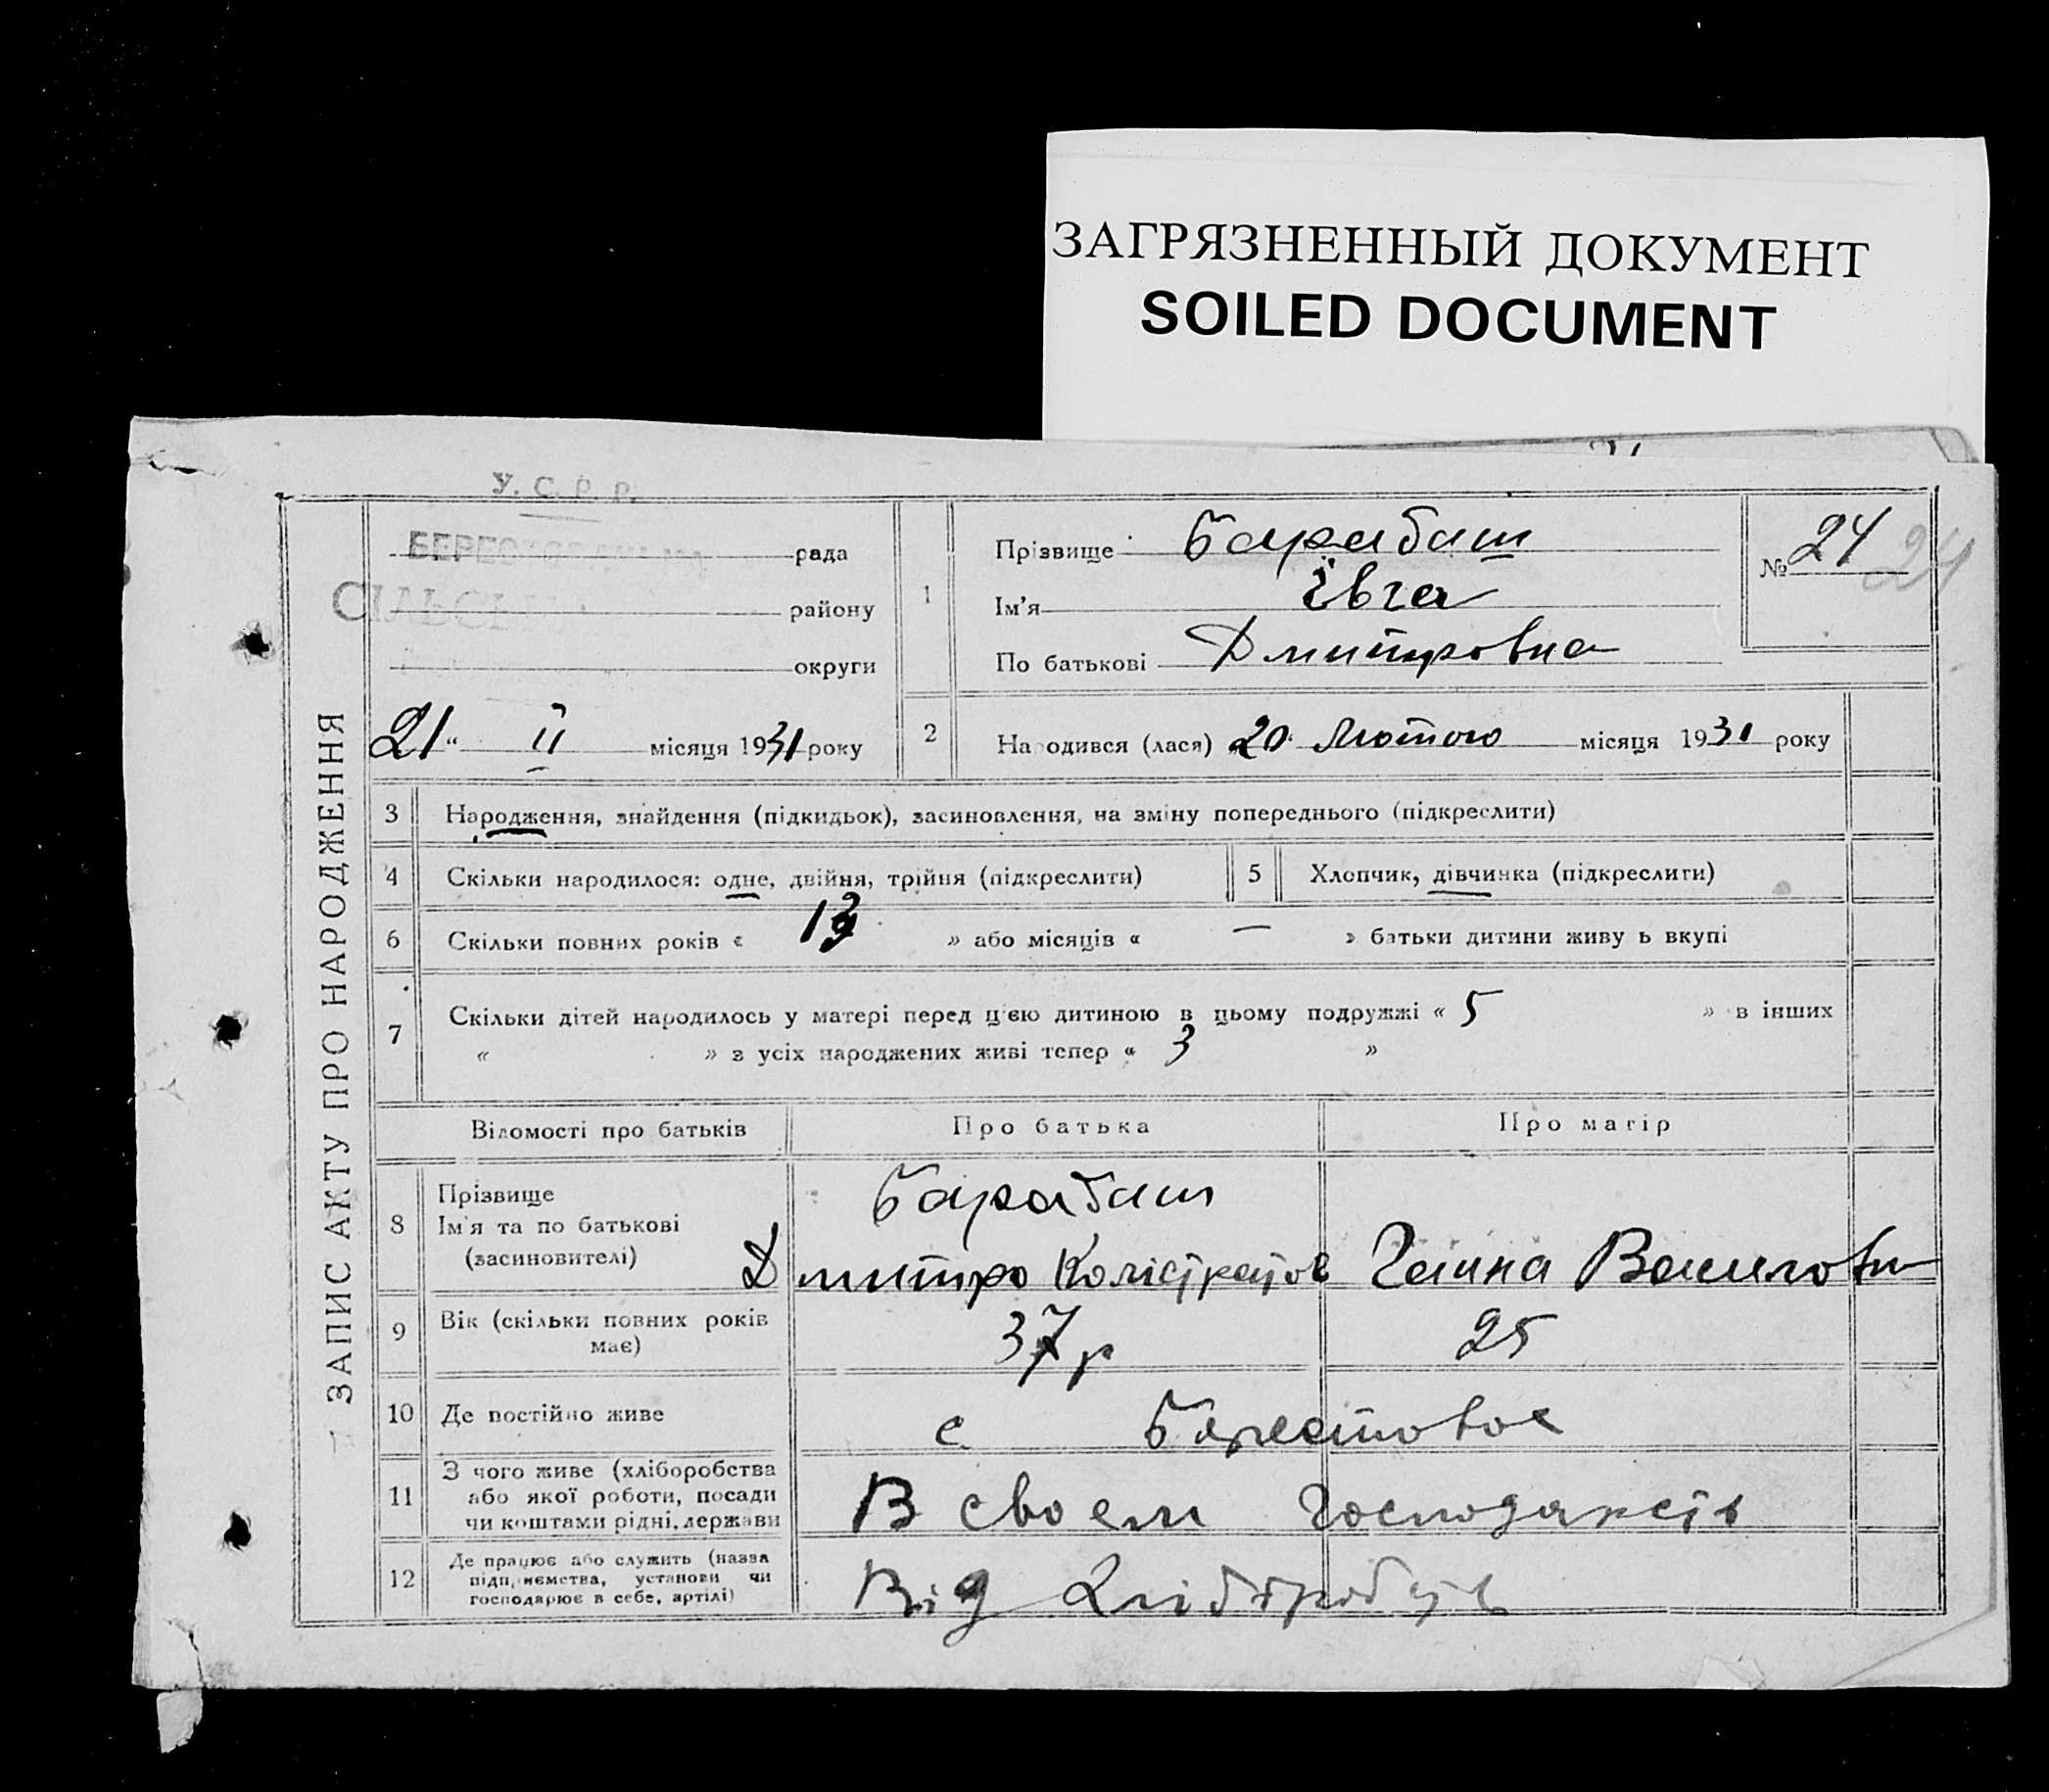 ЗАГРЯЗНЕННЫЙ ДОКУМЕНТ
SOILED DOCUMENT
У. С. Р. Р.
ЗАПИС АКТУ ПРО НАРОДЖЕННЯ
рада
СІЛЬСЬК
району
округи
21 “ II місяця 1931 року
1
Прізвище Барабаш
Ім'я Євга
По батькові Дмитровна
№ 24 24
2 Народився (лася) 20 Лютого місяця 1931 року
3 Народження, знайдення (підкидьок), засиновлення, на зміну попереднього (підкреслити)
4 Скільки народилося: одне, двійня, трійня (підкреслити) 5 Хлопчик, дівчинка (підкреслити)
6 Скільки повних років « 13 » або місяців « — » батьки дитини живу ь вкупі
7 Скільки дітей народилось у матері перед цією дитиною в цьому подружжі « 5 » в інших
« » з усіх народжених живі тепер « 3 »
Відомості про батьків Про батька Про матір
8 Прізвище
Ім'я та по батькові
(засиновителі)
Барабаш
Дмитро Колістратов Ганна Василовн
9 Вік (скільки повних років має) 37 р 25
10 Де постійно живе с Берестовое
11 З чого живе (хліборобства
або якої роботи, посади
чи коштами рідні, держави
В своем господарстві
12 Де працює або служить (назва
підприємства, установи чи
господарює в себе, артілі)
Від